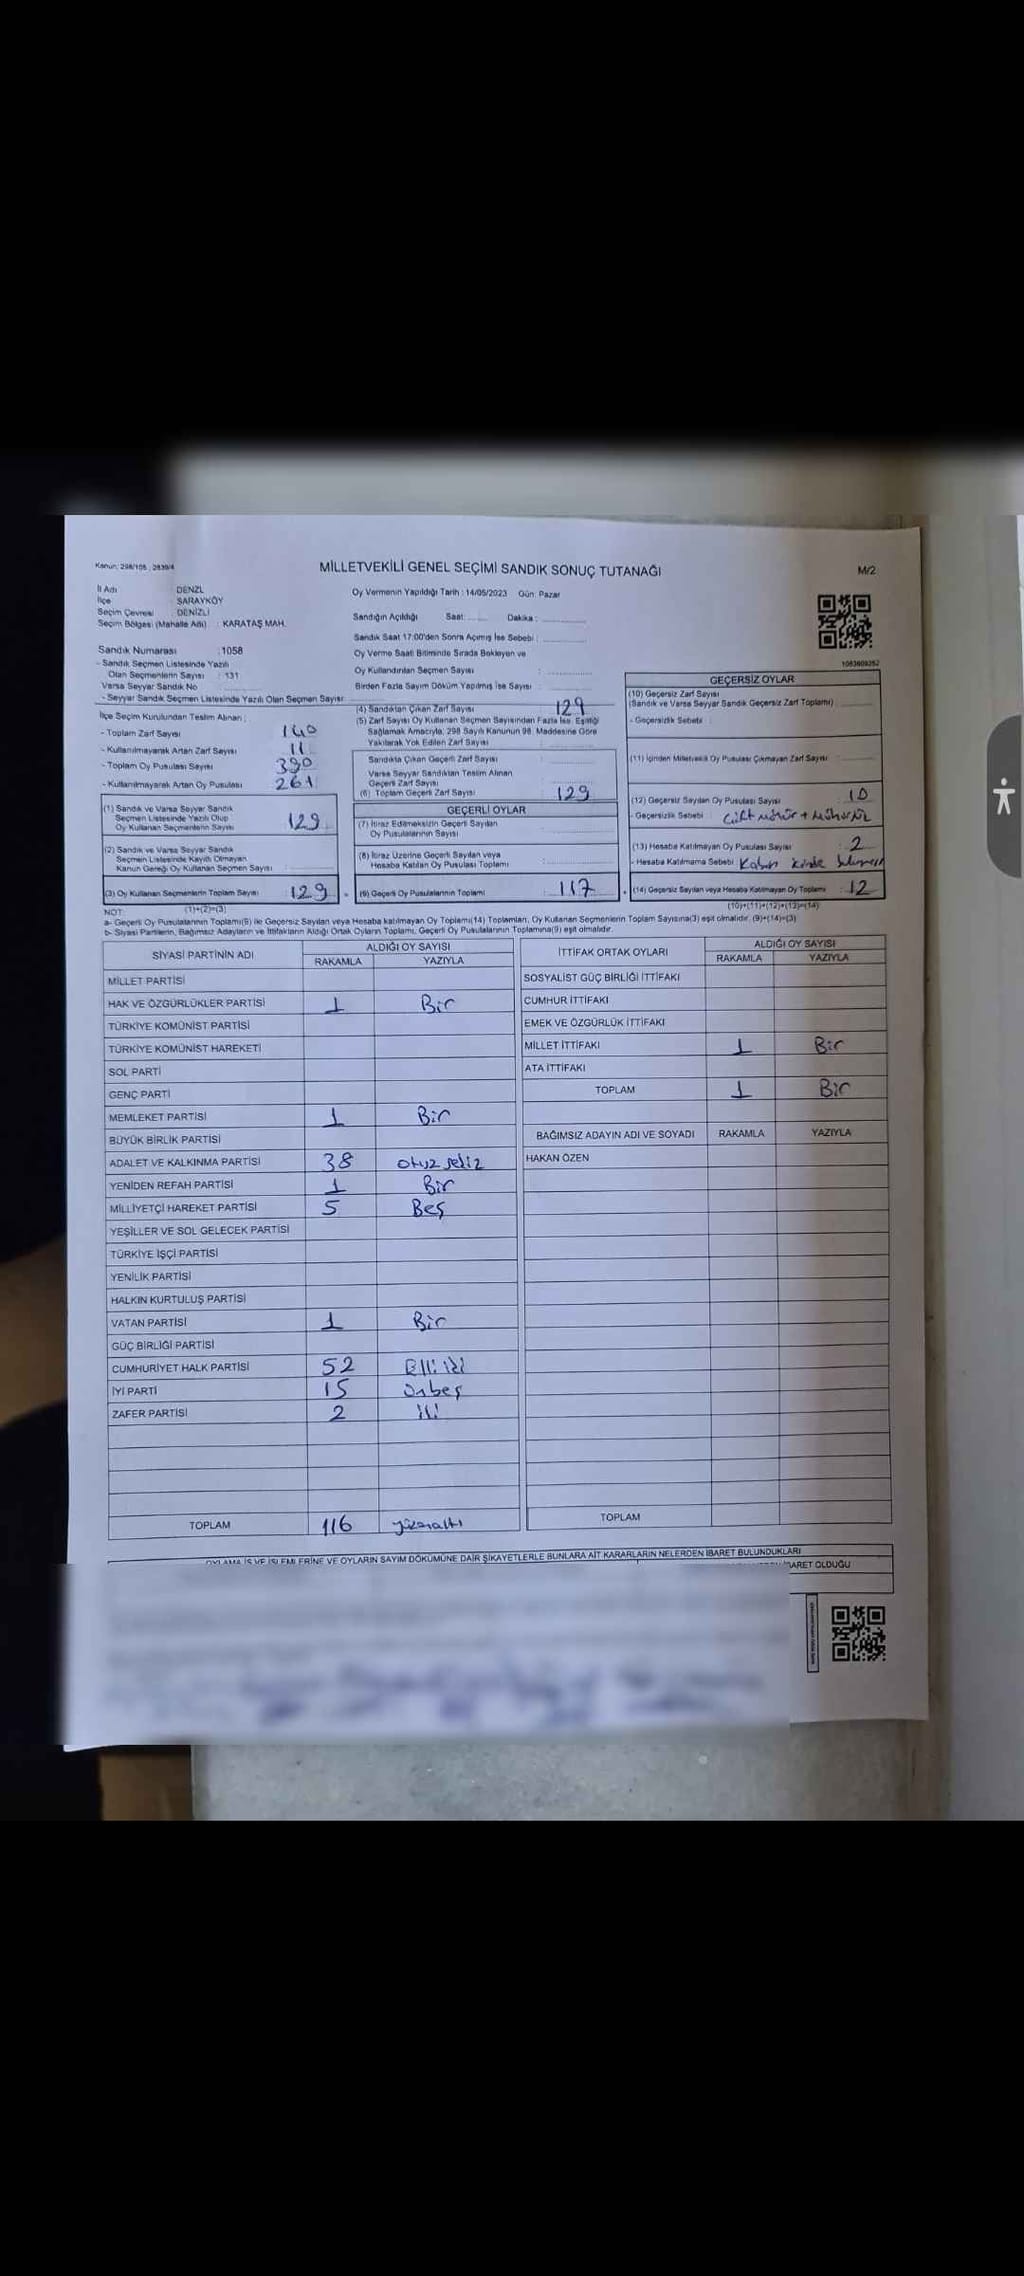 Kanun: 298/105 , 2839/4
MİLLETVEKİLİ GENEL SEÇİMİ SANDIK SONUÇ TUTANAĞI
M/2
İl Adı : DENZL
İlçe : SARAYKÖY
Seçim Çevresi : DENİZLİ
Seçim Bölgesi (Mahalle Adı) : KARATAŞ MAH.
Sandık Numarası : 1058
- Sandık Seçmen Listesinde Yazılı
Olan Seçmenlerin Sayısı : 131
Varsa Seyyar Sandık No
- Seyyar Sandık Seçmen Listesinde Yazılı Olan Seçmen Sayısı:
Oy Vermenin Yapıldığı Tarih : 14/05/2023 Gün: Pazar
Sandığın Açıldığı Saat: Dakika :
Sandık Saat 17:00'den Sonra Açımış İse Sebebi :
Oy Verme Saati Bitiminde Sırada Bekleyen ve
Oy Kullandırılan Seçmen Sayısı :
Birden Fazla Sayım Döküm Yapılmış İse Sayısı :
İlçe Seçim Kurulundan Teslim Alınan ;
- Toplam Zarf Sayısı 140
- Kullanılmayarak Artan Zarf Sayısı 11
- Toplam Oy Pusulası Sayısı 390
- Kullanılmayarak Artan Oy Pusulası 261
(1) Sandık ve Varsa Seyyar Sandık
Seçmen Listesinde Yazılı Olup
Oy Kullanan Seçmenlerin Sayısı : 129
(2) Sandık ve Varsa Seyyar Sandık
Seçmen Listesinde Kayıtlı Olmayan
Kanun Gereği Oy Kullanan Seçmen Sayısı :
(3) Oy Kullanan Seçmenlerin Toplam Sayısı : 129
(1)+(2)=(3)
(4) Sandıktan Çıkan Zarf Sayısı 129
(5) Zarf Sayısı Oy Kullanan Seçmen Sayısından Fazla İse, Eşitliği
Sağlamak Amacıyla, 298 Sayılı Kanunun 98. Maddesine Göre
Yakılarak Yok Edilen Zarf Sayısı :
Sandıkta Çıkan Geçerli Zarf Sayısı :
Varsa Seyyar Sandıktan Teslim Alınan
Geçerli Zarf Sayısı
(6) Toplam Geçerli Zarf Sayısı : 129
GEÇERLİ OYLAR
(7) İtiraz Edilmeksizin Geçerli Sayılan
Oy Pusulalarının Sayısı :
(8) İtiraz Üzerine Geçerli Sayılan veya
Hesaba Katılan Oy Pusulası Toplamı :
(9) Geçerli Oy Pusulalarının Toplamı : 117
1083609252
GEÇERSİZ OYLAR
(10) Geçersiz Zarf Sayısı
(Sandık ve Varsa Seyyar Sandık Geçersiz Zarf Toplamı) :
- Geçersizlik Sebebi :
(11) İçinden Milletvekili Oy Pusulası Çıkmayan Zarf Sayısı :
(12) Geçersiz Sayılan Oy Pusulası Sayısı : 10
- Geçersizlik Sebebi : Çift Mühür + Mühürsüz
(13) Hesaba Katılmayan Oy Pusulası Sayısı 2
- Hesaba Katılmama Sebebi :
(14) Geçersiz Sayılan veya Hesaba Katılmayan Oy Toplamı : 12
(10)+(11)+(12)+(13)=(14)
NOT:
a- Geçerli Oy Pusulalarının Toplamı(9) ile Geçersiz Sayılan veya Hesaba katılmayan Oy Toplamı(14) Toplamları, Oy Kullanan Seçmenlerin Toplam Sayısına(3) eşit olmalıdır. (9)+(14)=(3)
b- Siyasi Partilerin, Bağımsız Adayların ve İttifakların Aldığı Ortak Oyların Toplamı, Geçerli Oy Pusulalarının Toplamına(9) eşit olmalıdır.
SİYASİ PARTİNİN ADI ALDIĞI OY SAYISI
RAKAMLA YAZIYLA
MİLLET PARTİSİ
HAK VE ÖZGÜRLÜKLER PARTİSİ 1 Bir
TÜRKİYE KOMÜNİST PARTİSİ
TÜRKİYE KOMÜNİST HAREKETİ
SOL PARTİ
GENÇ PARTİ
MEMLEKET PARTİSİ 1 Bir
BÜYÜK BİRLİK PARTİSİ
ADALET VE KALKINMA PARTİSİ 38 otuz sekiz
YENİDEN REFAH PARTİSİ 1 Bir
MİLLİYETÇİ HAREKET PARTİSİ 5 Beş
YEŞİLLER VE SOL GELECEK PARTİSİ
TÜRKİYE İŞÇİ PARTİSİ
YENİLİK PARTİSİ
HALKIN KURTULUŞ PARTİSİ
VATAN PARTİSİ 1 Bir
GÜÇ BİRLİĞİ PARTİSİ
CUMHURİYET HALK PARTİSİ 52 Elli iki
İYİ PARTİ 15 Onbeş
ZAFER PARTİSİ 2 iki
TOPLAM 116 yüzonaltı
İTTİFAK ORTAK OYLARI ALDIĞI OY SAYISI
RAKAMLA YAZIYLA
SOSYALİST GÜÇ BİRLİĞİ İTTİFAKI
CUMHUR İTTİFAKI
EMEK VE ÖZGÜRLÜK İTTİFAKI
MİLLET İTTİFAKI 1 Bir
ATA İTTİFAKI
TOPLAM 1 Bir
BAĞIMSIZ ADAYIN ADI VE SOYADI RAKAMLA YAZIYLA
HAKAN ÖZEN
TOPLAM
OYLAMA İŞ VE İŞLEMLERİNE VE OYLARIN SAYIM DÖKÜMÜNE DAİR ŞİKAYETLERLE BUNLARA AİT KARARLARIN NELERDEN İBARET BULUNDUKLARI
İBARET OLDUĞU